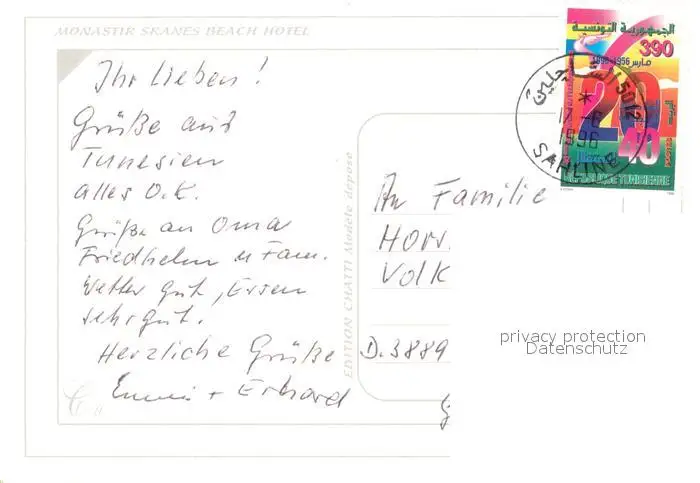 MONASTIR SKANES BEACH HOTEL
Ihr Lieben!
Grüße aus
Tunesien
alles O.K.
Grüße an Oma
Friedhelm u Fam.
Wetter gut, Essen
sehr gut.
Herzliche Grüße
+ Erhard
EDITION CHATTI Modèle déposé
الجمهورية التونسية
390
مارس 1956-1996
20
40
REPUBLIQUE TUNISIENNE
1996
SAHLINE
An Familie
Horr.
Volk
D.3889
privacy protection
Datenschutz